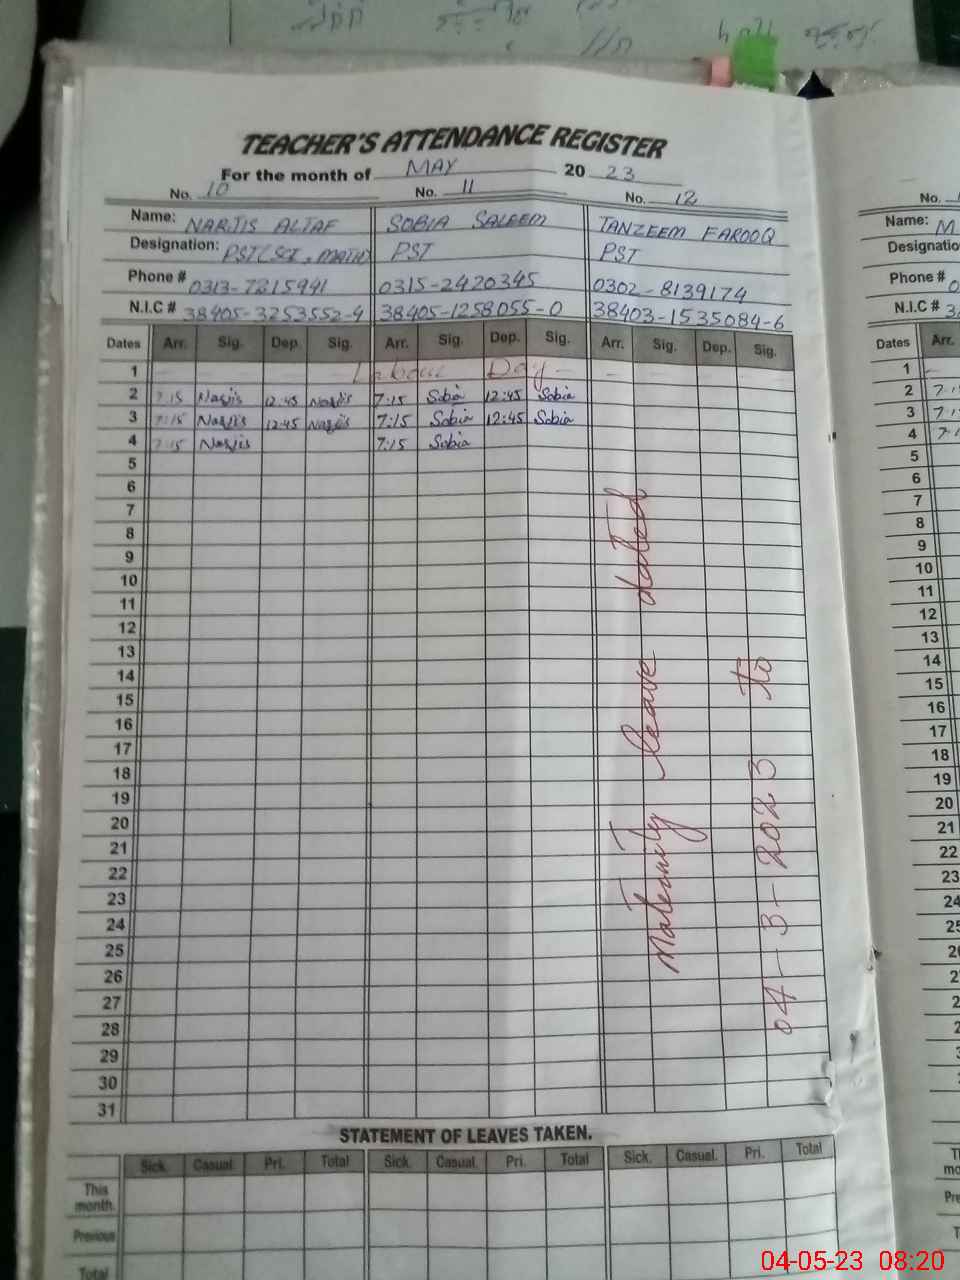 TEACHER'S ATTENDANCE REGISTER
For the month of MAY 20 23
No. 10 No. 11 No. 12
Name: NARJIS ALTAF SOBIA SALEEM TANZEEM FAROOQ
Designation: PST(SCI, MATH) PST PST
Phone # 0313-7215941 0315-2420345 0302-8139174
N.I.C # 38405-3253552-4 38405-1258055-0 38403-1535084-6
Dates Arr. Sig. Dep. Sig. Arr. Sig. Dep. Sig. Arr. Sig. Dep. Sig.
1 Labour Day
2 7:15 Narjis 12:45 Narjis 7:15 Sobia 12:45 Sobia
3 7:15 Narjis 12:45 Narjis 7:15 Sobia 12:45 Sobia
4 7:15 Narjis 7:15 Sobia
5
6
7
8
9
10
11
12
13
14
15
16
17
18
19
20
21
22
23
24
25
26
27
28
29
30
31
Maternity leave dated
04-3-2023 to
STATEMENT OF LEAVES TAKEN.
Sick. Casual. Pri. Total Sick. Casual. Pri. Total Sick. Casual. Pri. Total
This
month.
Previous
Total
No.
Name: M
Designatio
Phone # 0
N.I.C # 3
Dates Arr.
1
2 7:1
3 7:1
4 7:1
5
6
7
8
9
10
11
12
13
14
15
16
17
18
19
20
21
22
23
24
25
04-05-23 08:20